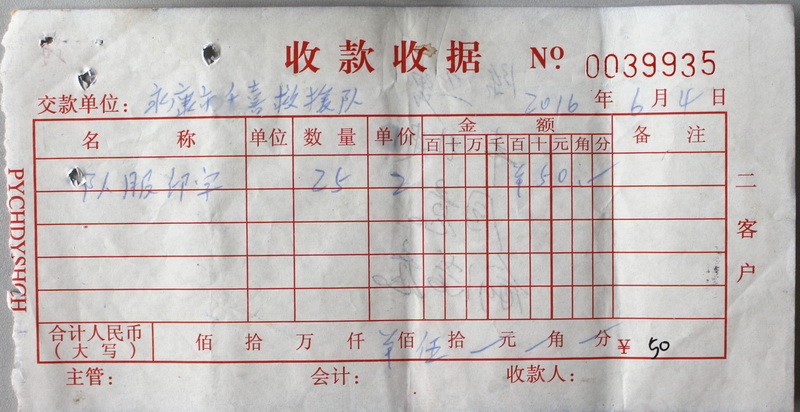 收款收据 Nº 0039935
交款单位：永康市千喜救援队 2016年6月4日
名称 单位 数量 单价 金额 备注
百十万千百十元角分
队服印字 25 2 ¥50.—
合计人民币（大写） 佰 拾 万 仟 佰 伍拾 元 角 分 ¥ 50
主管： 会计： 收款人：
二客户
PYCHDYSHCH